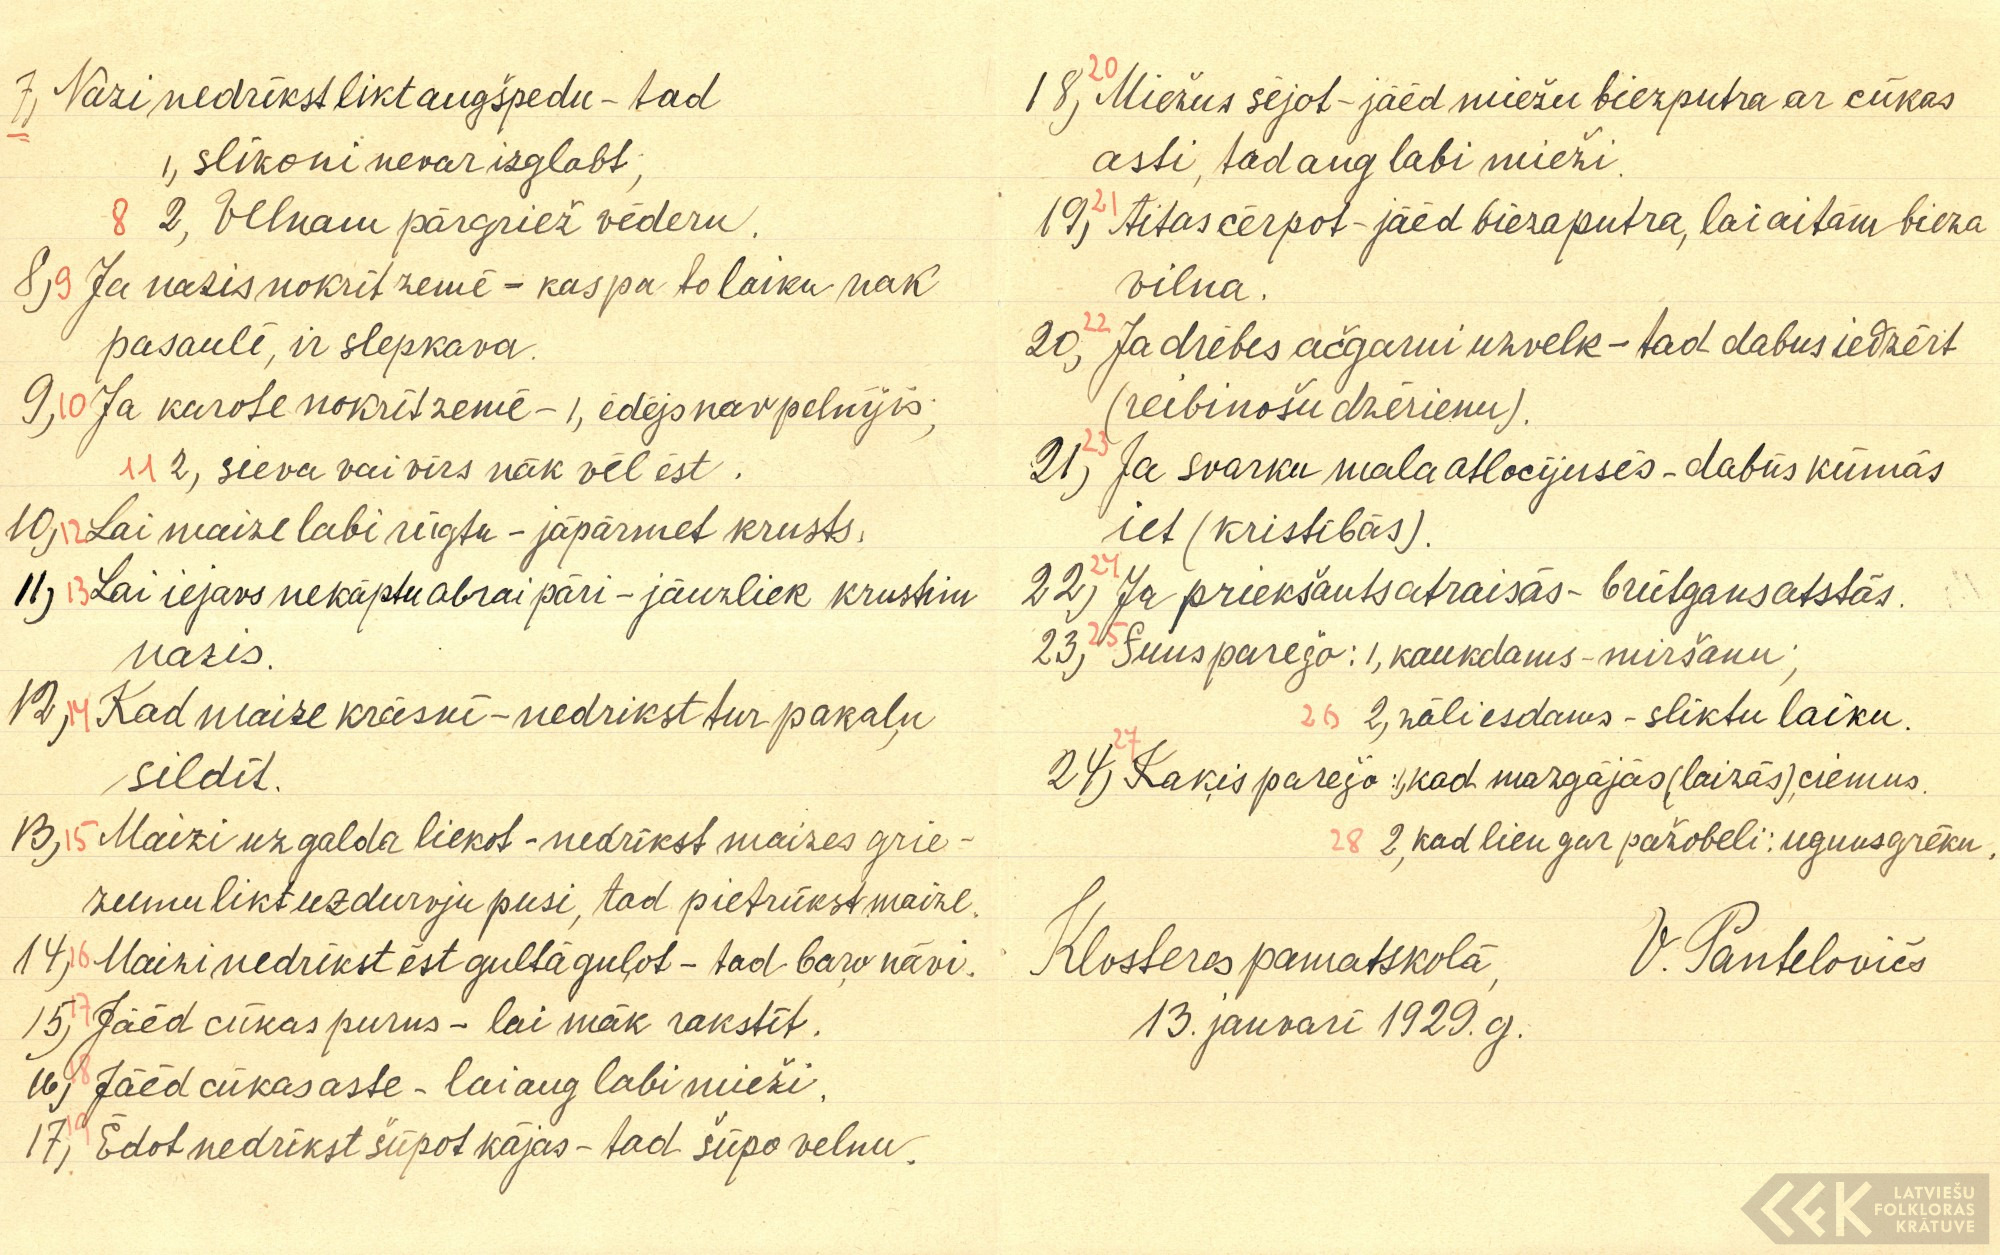 7, Nazi nedrīkst likt augšpēdu – tad
1, slīkoni nevar izglabt;
8 2, Vēlnam pārgriež vēderu.
8, 9 Ja nazis nokrīt zemē – kas pa to laiku nak
pasaulē, ir slepkava.
9, 10 Ja karote nokrīt zemē – 1, ēdējs nav pelnijis;
11 2, sieva vai vīrs nāk vēl ēst.
10, 12 Lai maize labi rūgtu – jāpārmet krusts.
11, 13 Lai iejavs nekāptu abrai pāri – jāuzliek krustim
nazis.
12, 14 Kad maize krāsnī – nedrīkst tur pakaļu
sildīt.
13, 15 Maizi uz galda liekot – nedrīkst maizes grie-
zumu likt uz durvju pusi, tad pietrūkst maize.
14, 16 Maizi nedrīkst ēst gultā guļot – tad baro nāvi.
15, 17 Jāēd cūkas purns – lai māk rakstīt.
16, 18 Jāēd cūkas aste – lai aug labi mieži.
17, 19 Ēdot nedrīkst šūpot kājas – tad šūpo velnu.
18, 20 Miežus sējot – jāēd miežu biezputra ar cūkas
asti, tad aug labi mieži.
19, 21 Aitas cērpot – jāēd bieza putra, lai aitām bieza
vilna.
20, 22 Ja drēbes ačgarni uzvelk – tad dabus iedzērt
(reibinošu dzērienu).
21, 23 Ja svarku mala atlocijusēs – dabūs kūmās
iet (kristībās).
22, 24 Ja priekšauts atraisās – brūtgans atstās.
23, 25 Suns pareģo: 1, kaukdams – miršanu;
26 2, zāli ēsdams – sliktu laiku.
24, 27 Kaķis pareģo: 1, kad mazgājās (laizās), ciemus.
28 2, kad lien gar pažobeli: ugunsgrēku.
Klosteres pamatskolā, V. Pantelovičs
13. janvarī 1929. g.
LATVIEŠU
FOLKLORAS
KRĀTUVE